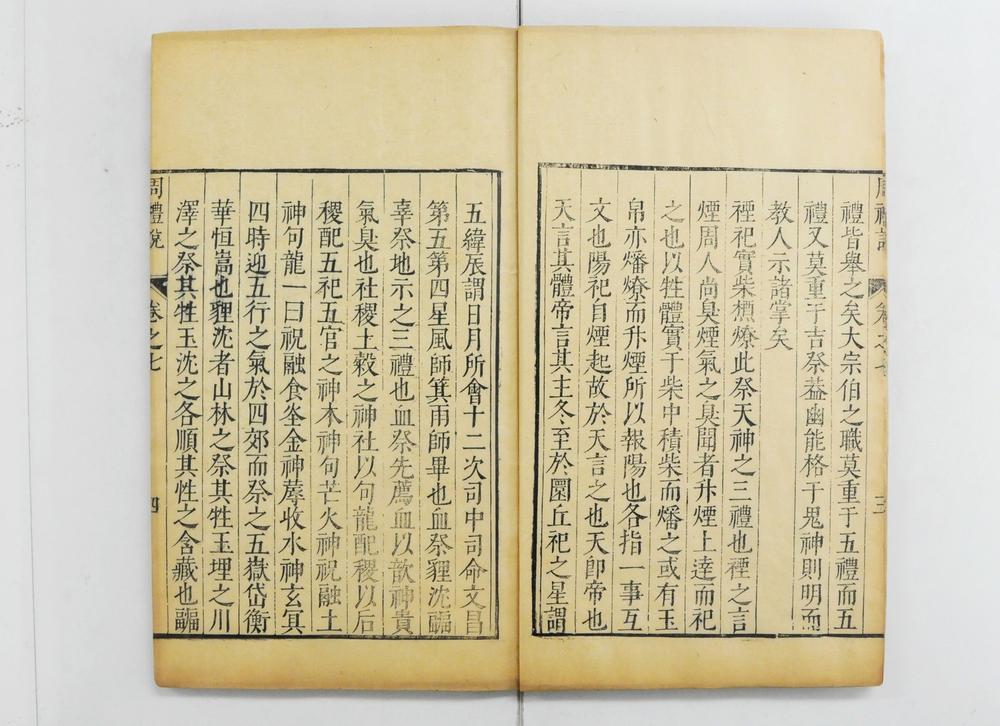 周禮說 卷之七 三
禮皆舉之矣大宗伯之職莫重于五禮而五
禮又莫重于吉祭葢幽能格于鬼神則明而
教人示諸掌矣
禋祀實柴槱燎此祭天神之三禮也禋之言
煙周人尚臭煙氣之臭聞者升煙上達而祀
之也以牲體實于柴中積柴而燔之或有玉
帛亦燔燎而升煙所以報陽也各指一事互
文也陽祀自煙起故於天言之也天卽帝也
天言其體帝言其主冬至於圜丘祀之星謂
五緯辰謂日月所會十二次司中司命文昌
第五第四星風師箕雨師畢也血祭貍沈疈
辜祭地示之三禮也血祭先薦血以歆神貴
氣臭也社稷土穀之神社以句龍配稷以后
稷配五祀五官之神木神句芒火神祝融土
神句龍一曰祝融食於金神蓐收水神玄冥
四時迎五行之氣於四郊而祭之五嶽岱衡
華恒嵩也貍沈者山林之祭其牲玉埋之川
澤之祭其牲玉沈之各順其性之含藏也疈
周禮說 卷之七 四